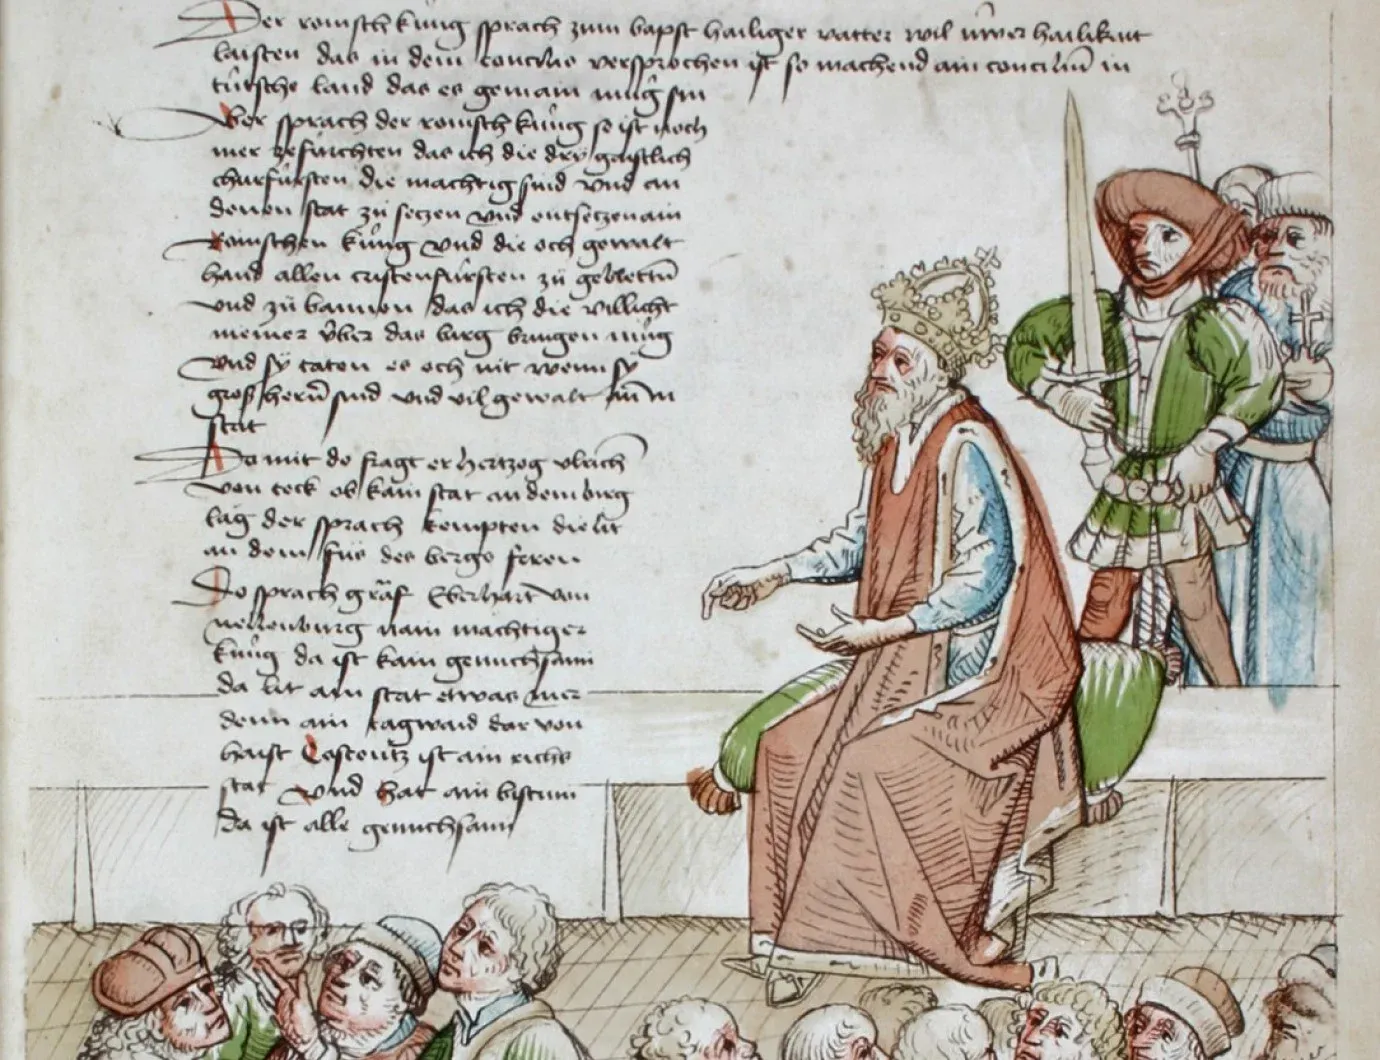 Der romisch kung sprach zum bapst hailiger vatter wil uwer hailikait
laisten das in dem concilio versprochen ist so machend ain concilium in
tutsche land das es gemain mug sin
Aber sprach der romisch kung so ist noch
mer ze furchten das ich die dry gaistlich
churfursten die machtig sind und an
denen stat zu seczen und entseczen ain
Romischen kung und die och gewalt
hand allen cristenfursten zu gebietten
und zu bannen das ich die villicht
meiner uber das birg bringen mug
und sy taten es och nit wenn sy
groß herren sind und vil gewalt an in
stat
Do mit do fragt er hertzog Ulrich
von teck ob kain stat an dem birg
lag der sprach kempten die lit
an dem fus des bergs feren
Do sprach graf Eberhart von
nellenburg nain machtiger
kung da ist kain genuchsami
da lit ain stat etwas mer
denn ain tagwaid dar von
haist Costentz ist ain richs
stat und hat ain bistum
da ist alle genuchsami